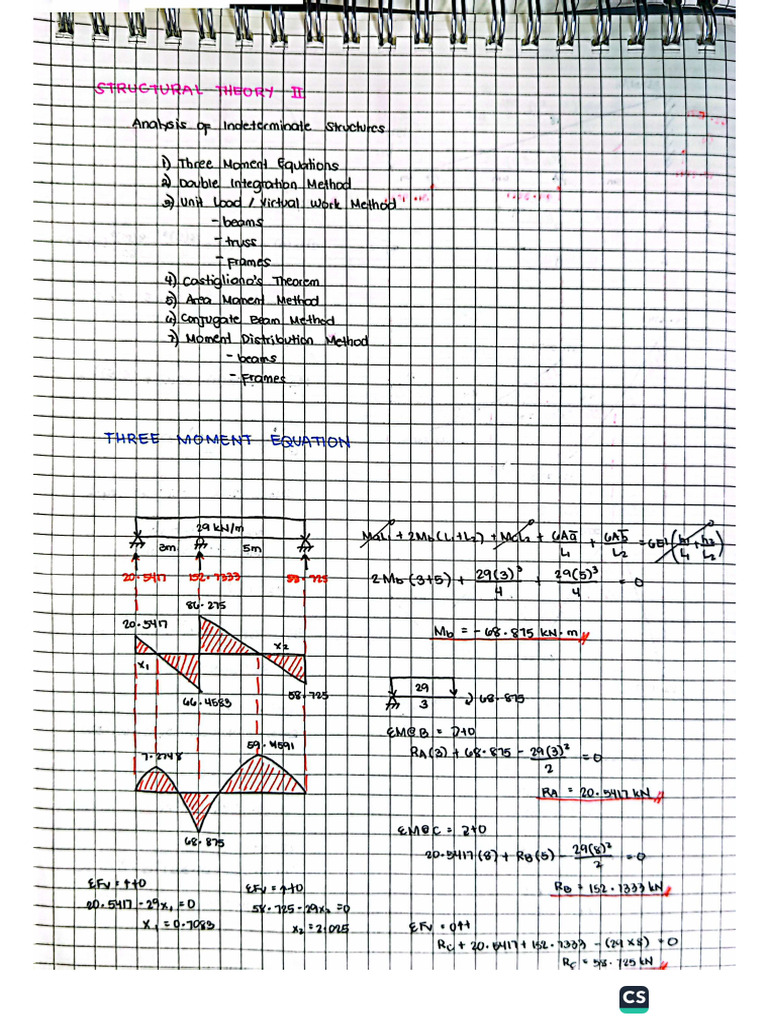 STRUCTURAL THEORY II
Analysis of Indeterminate Structures
1) Three Moment Equations
2) Double Integration Method
3) Unit Load / Virtual Work Method
- beams
- truss
- Frames
4) Castigliano's Theorem
5) Area Moment Method
6) Conjugate Beam Method
7) Moment Distribution Method
- beams
- Frames
THREE MOMENT EQUATION
29 kN/m
3m 5m
20.5417 152.7333 58.725
86.275
20.5417
x2
x1
58.725
66.4583
7.2748
59.4591
68.875
ΣFv = ↑+0
20.5417 - 29x1 = 0
x1 = 0.7083
ΣFv = ↑+0
58.725 - 29x2 = 0
x2 = 2.025
MaL1 + 2Mb(L1+L2) + McL2 + 6Aā/L1 + 6Ab̄/L2 = 6EI(h1/L1 + h3/L2)
2Mb(3+5) + 29(3)³/4 + 29(5)³/4 = 0
Mb = -68.875 kN.m
29
3 68.875
ΣM@B = ↻+0
RA(3) + 68.875 - 29(3)²/2 = 0
RA = 20.5417 kN
ΣM@C = ↻+0
20.5417(8) + RB(5) - 29(8)²/2 = 0
RB = 152.7333 kN
ΣFv = 0+↑
RC + 20.5417 + 152.7333 - (29×8) = 0
RC = 58.725 kN
CS